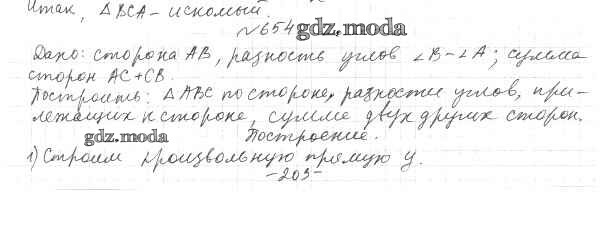 Итак, ΔBCA – искомый.
№654 gdz.moda
Дано: сторона AB, разность углов ∠B-∠A; сумма
сторон AC+CB.
Построить: ΔABC по стороне, разности углов, при-
лежащих к стороне, сумме двух других сторон.
gdz.moda Построение.
1) Строим произвольную прямую y.
-203-